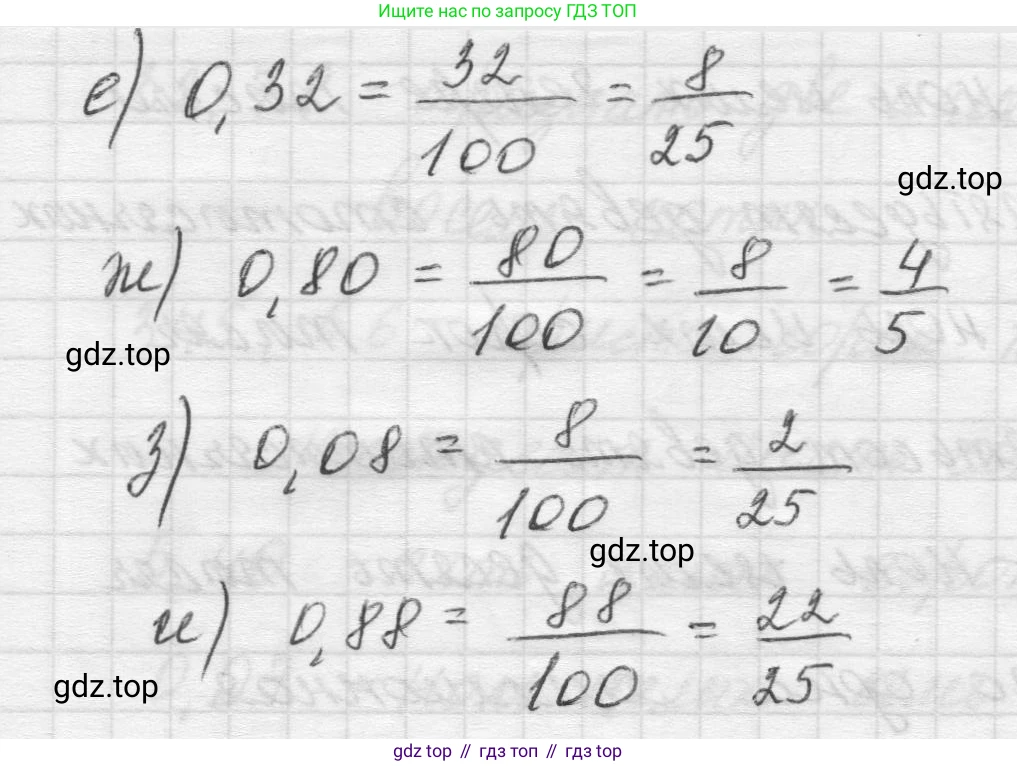 Ищите нас по запросу ГДЗ ТОП
е) 0,32 = 32/100 = 8/25
gdz.top
ж) 0,80 = 80/100 = 8/10 = 4/5
gdz.top
з) 0,08 = 8/100 = 2/25
gdz.top
и) 0,88 = 88/100 = 22/25
gdz.top
gdz top // гдз топ // гдз top